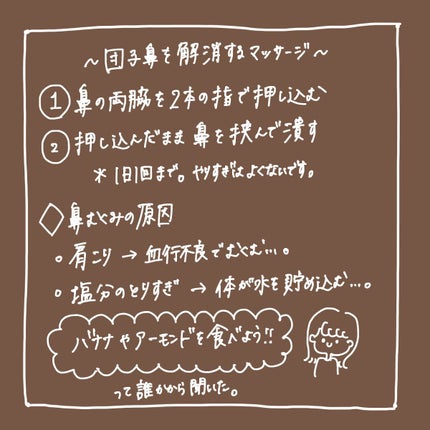 ～団子鼻を解消するマッサージ～
① 鼻の両脇を2本の指で押し込む
② 押し込んだまま 鼻を挟んで潰す
＊1日1回まで。やりすぎはよくないです。
◇鼻むくみの原因
。肩こり → 血行不良でむくむ…。
。塩分のとりすぎ → 体が水を貯め込む…。
バナナやアーモンドを食べよう!!
って誰かから聞いた。